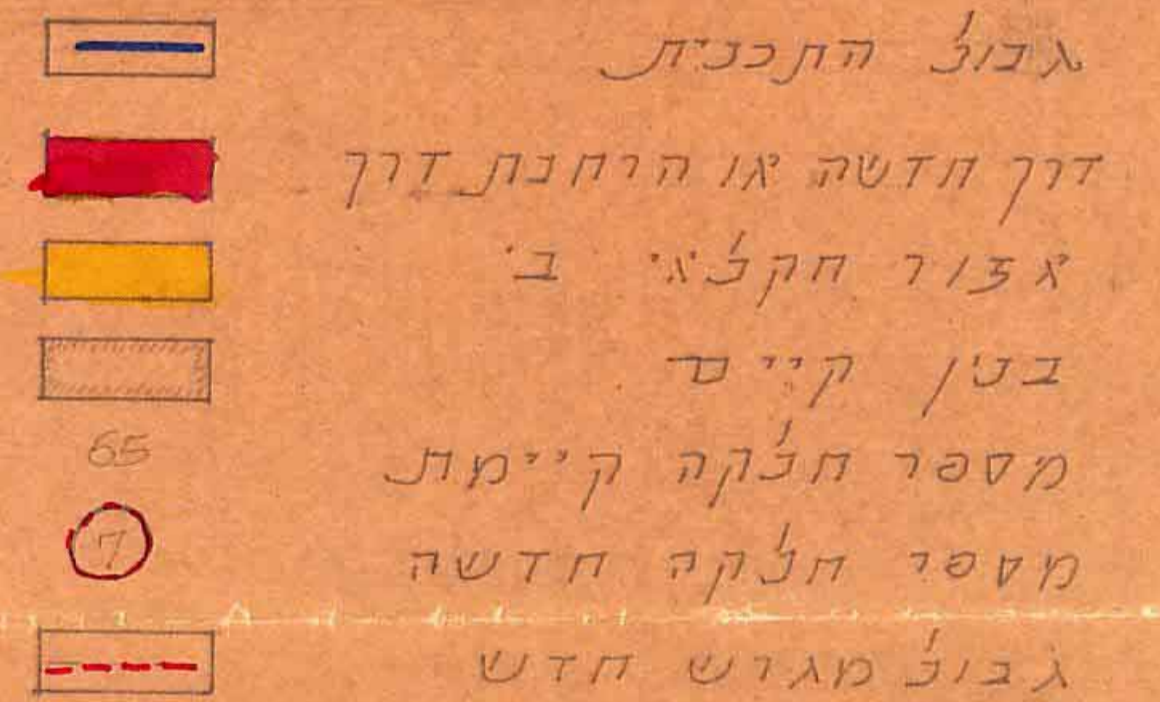 גבול התכנית
דרך חדשה או הרחבת דרך
אזור חקלאי ב'
בנין קיים
65 מספר חלקה קיימת
7 מספר חלקה חדשה
גבול מגרש חדש